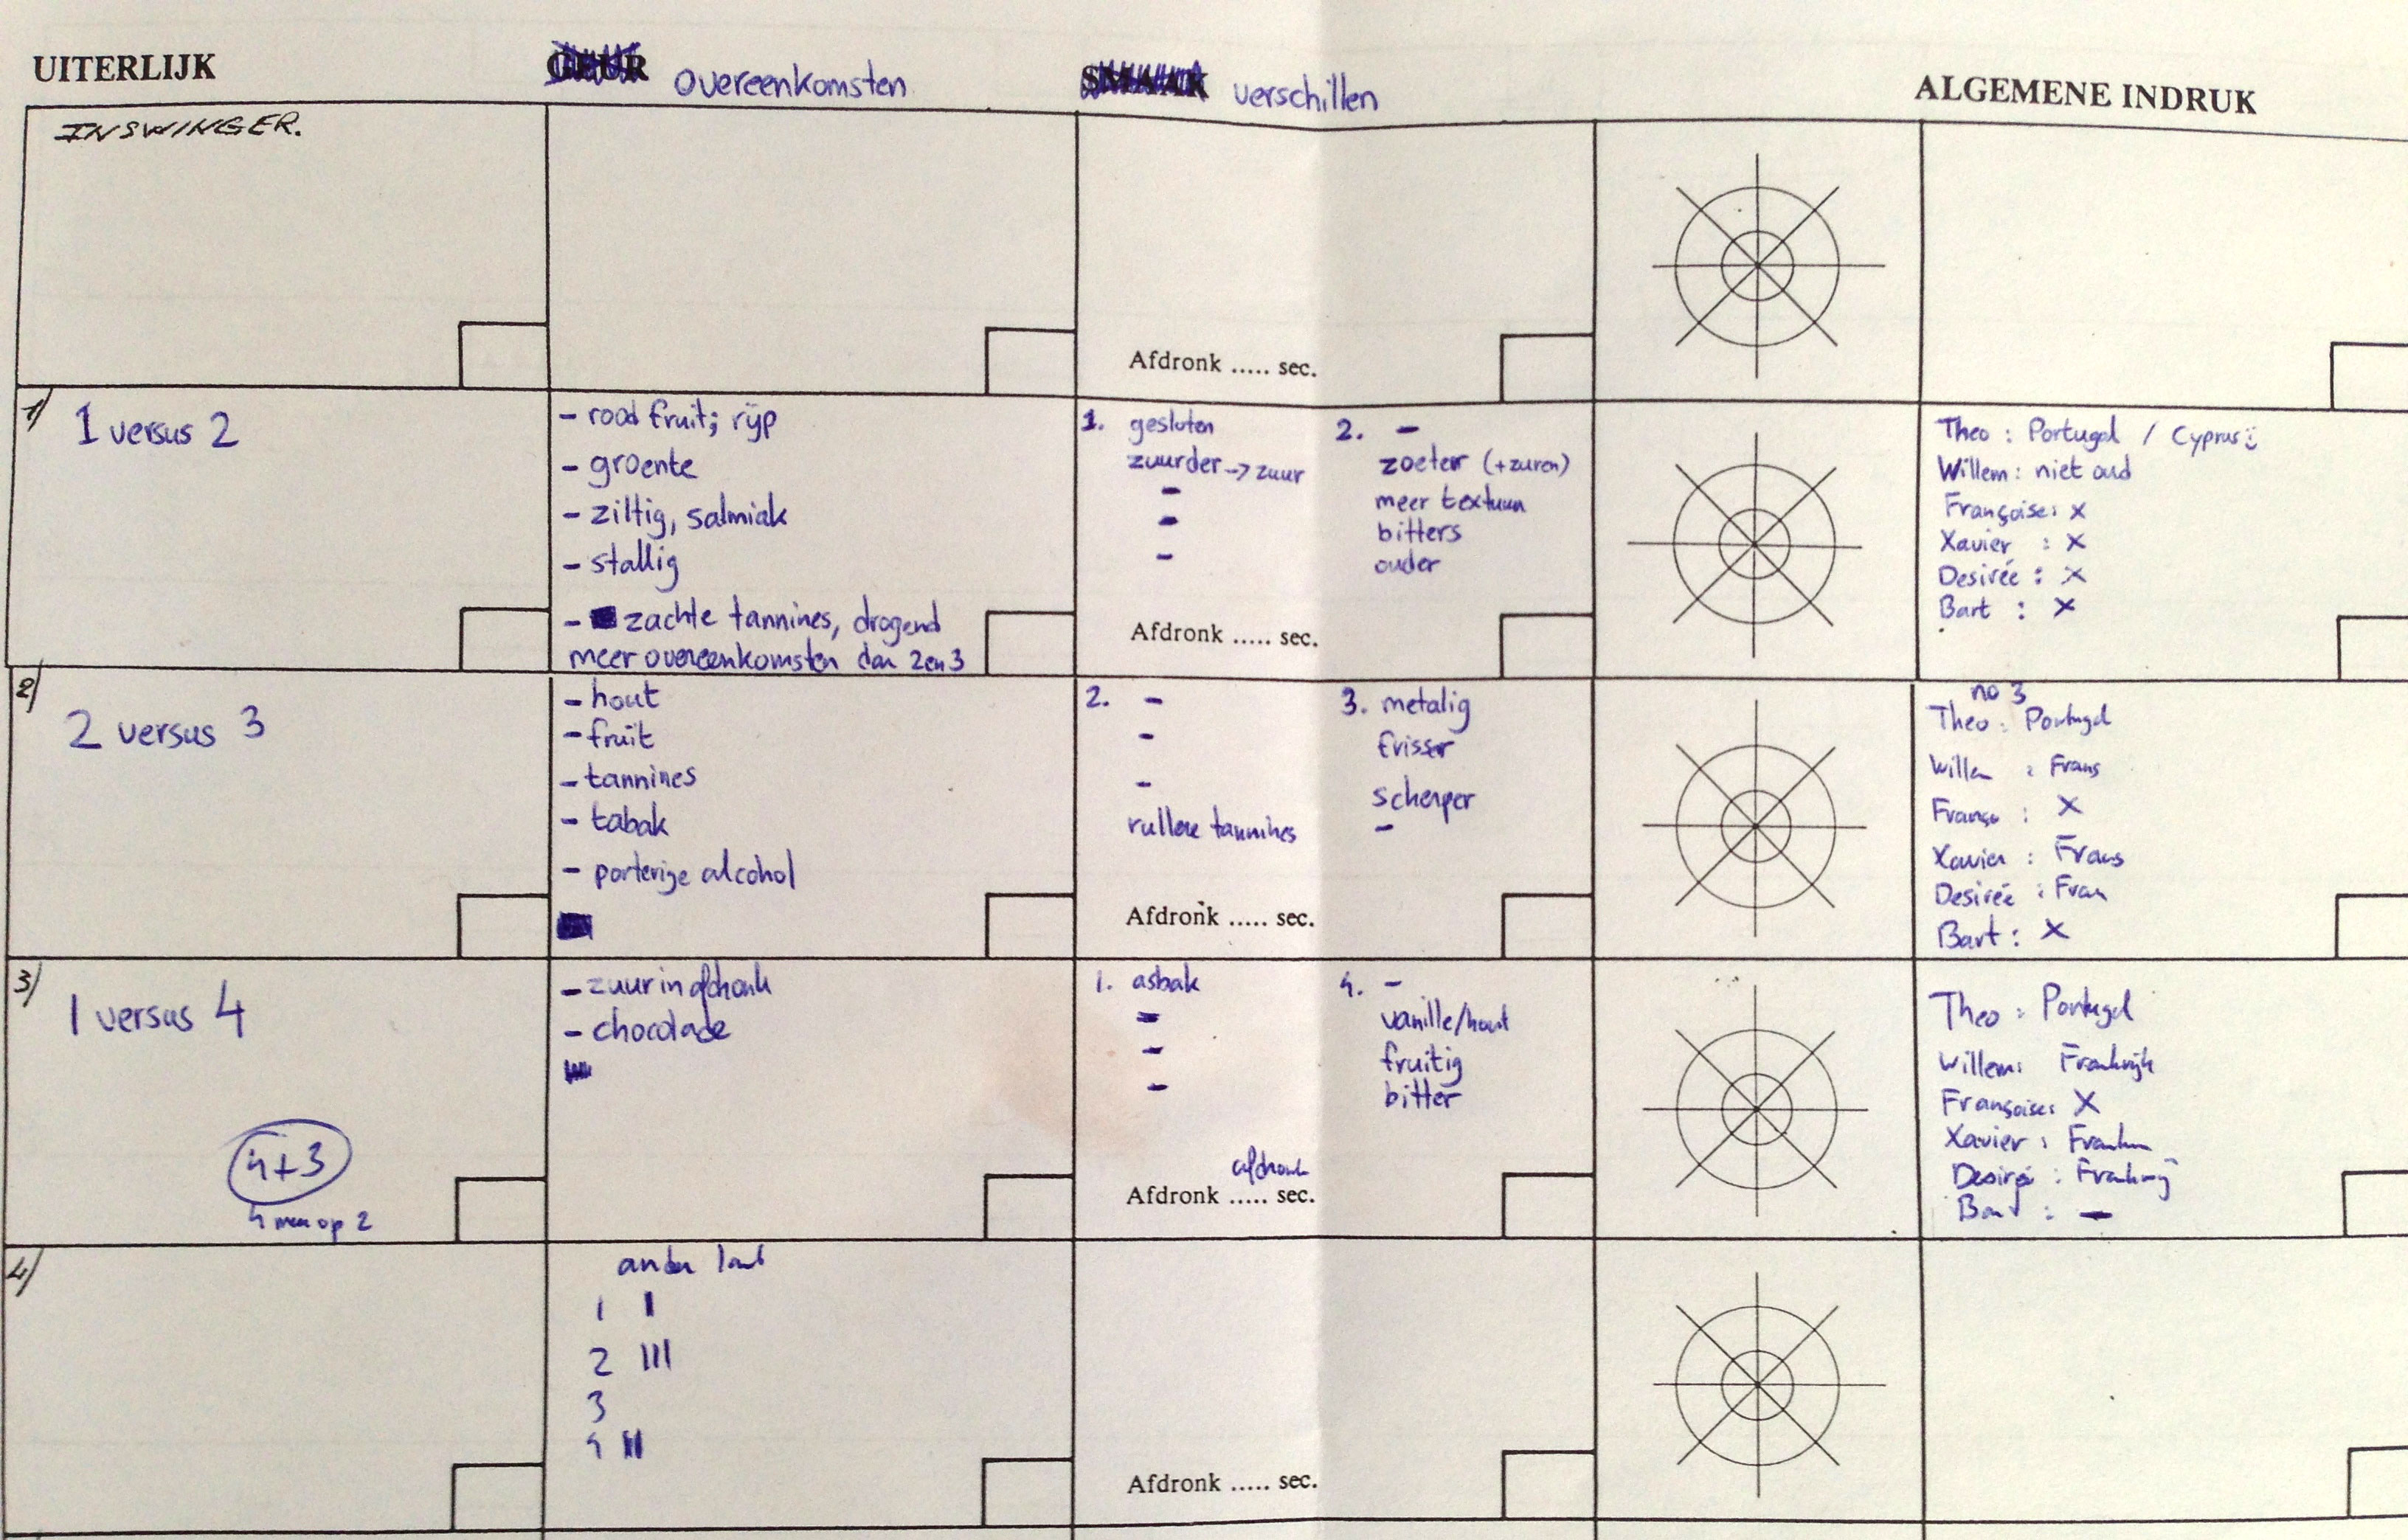 UITERLIJK
GEUR overeenkomsten
SMAAK verschillen
ALGEMENE INDRUK
INSWINGER.
Afdronk ..... sec.
1)
1 versus 2
- rood fruit; rijp
- groente
- ziltig, salmiak
- stallig
- zachte tannines, drogend
meer overeenkomsten dan 2 en 3
1. gesloten
zuurder -> zuur
-
-
-
Afdronk ..... sec.
2. -
zoeter (+zuren)
meer textuur
bitters
ouder
Theo : Portugal / Cyprus
Willem : niet oud
Françoise : x
Xavier : x
Desirée : x
Bart : x
2)
2 versus 3
- hout
- fruit
- tannines
- tabak
- porterige alcohol
2. -
-
-
rullere tannines
Afdronk ..... sec.
3. metalig
frisser
scherper
-
no 3
Theo : Portugal
Willem : Frans
Franço : x
Xavier : Frans
Desirée : Fran
Bart : x
3)
1 versus 4
4+3
4 meer op 2
- zuur in afdronk
- chocolade
1. asbak
-
-
-
afdronk
Afdronk ..... sec.
4. -
vanille/hout
fruitig
bitter
Theo : Portugal
Willem : Frankrijk
Françoise : x
Xavier :
Desirée :
Bart : -
4)
ander land
1 I
2 III
3
4 II
Afdronk ..... sec.